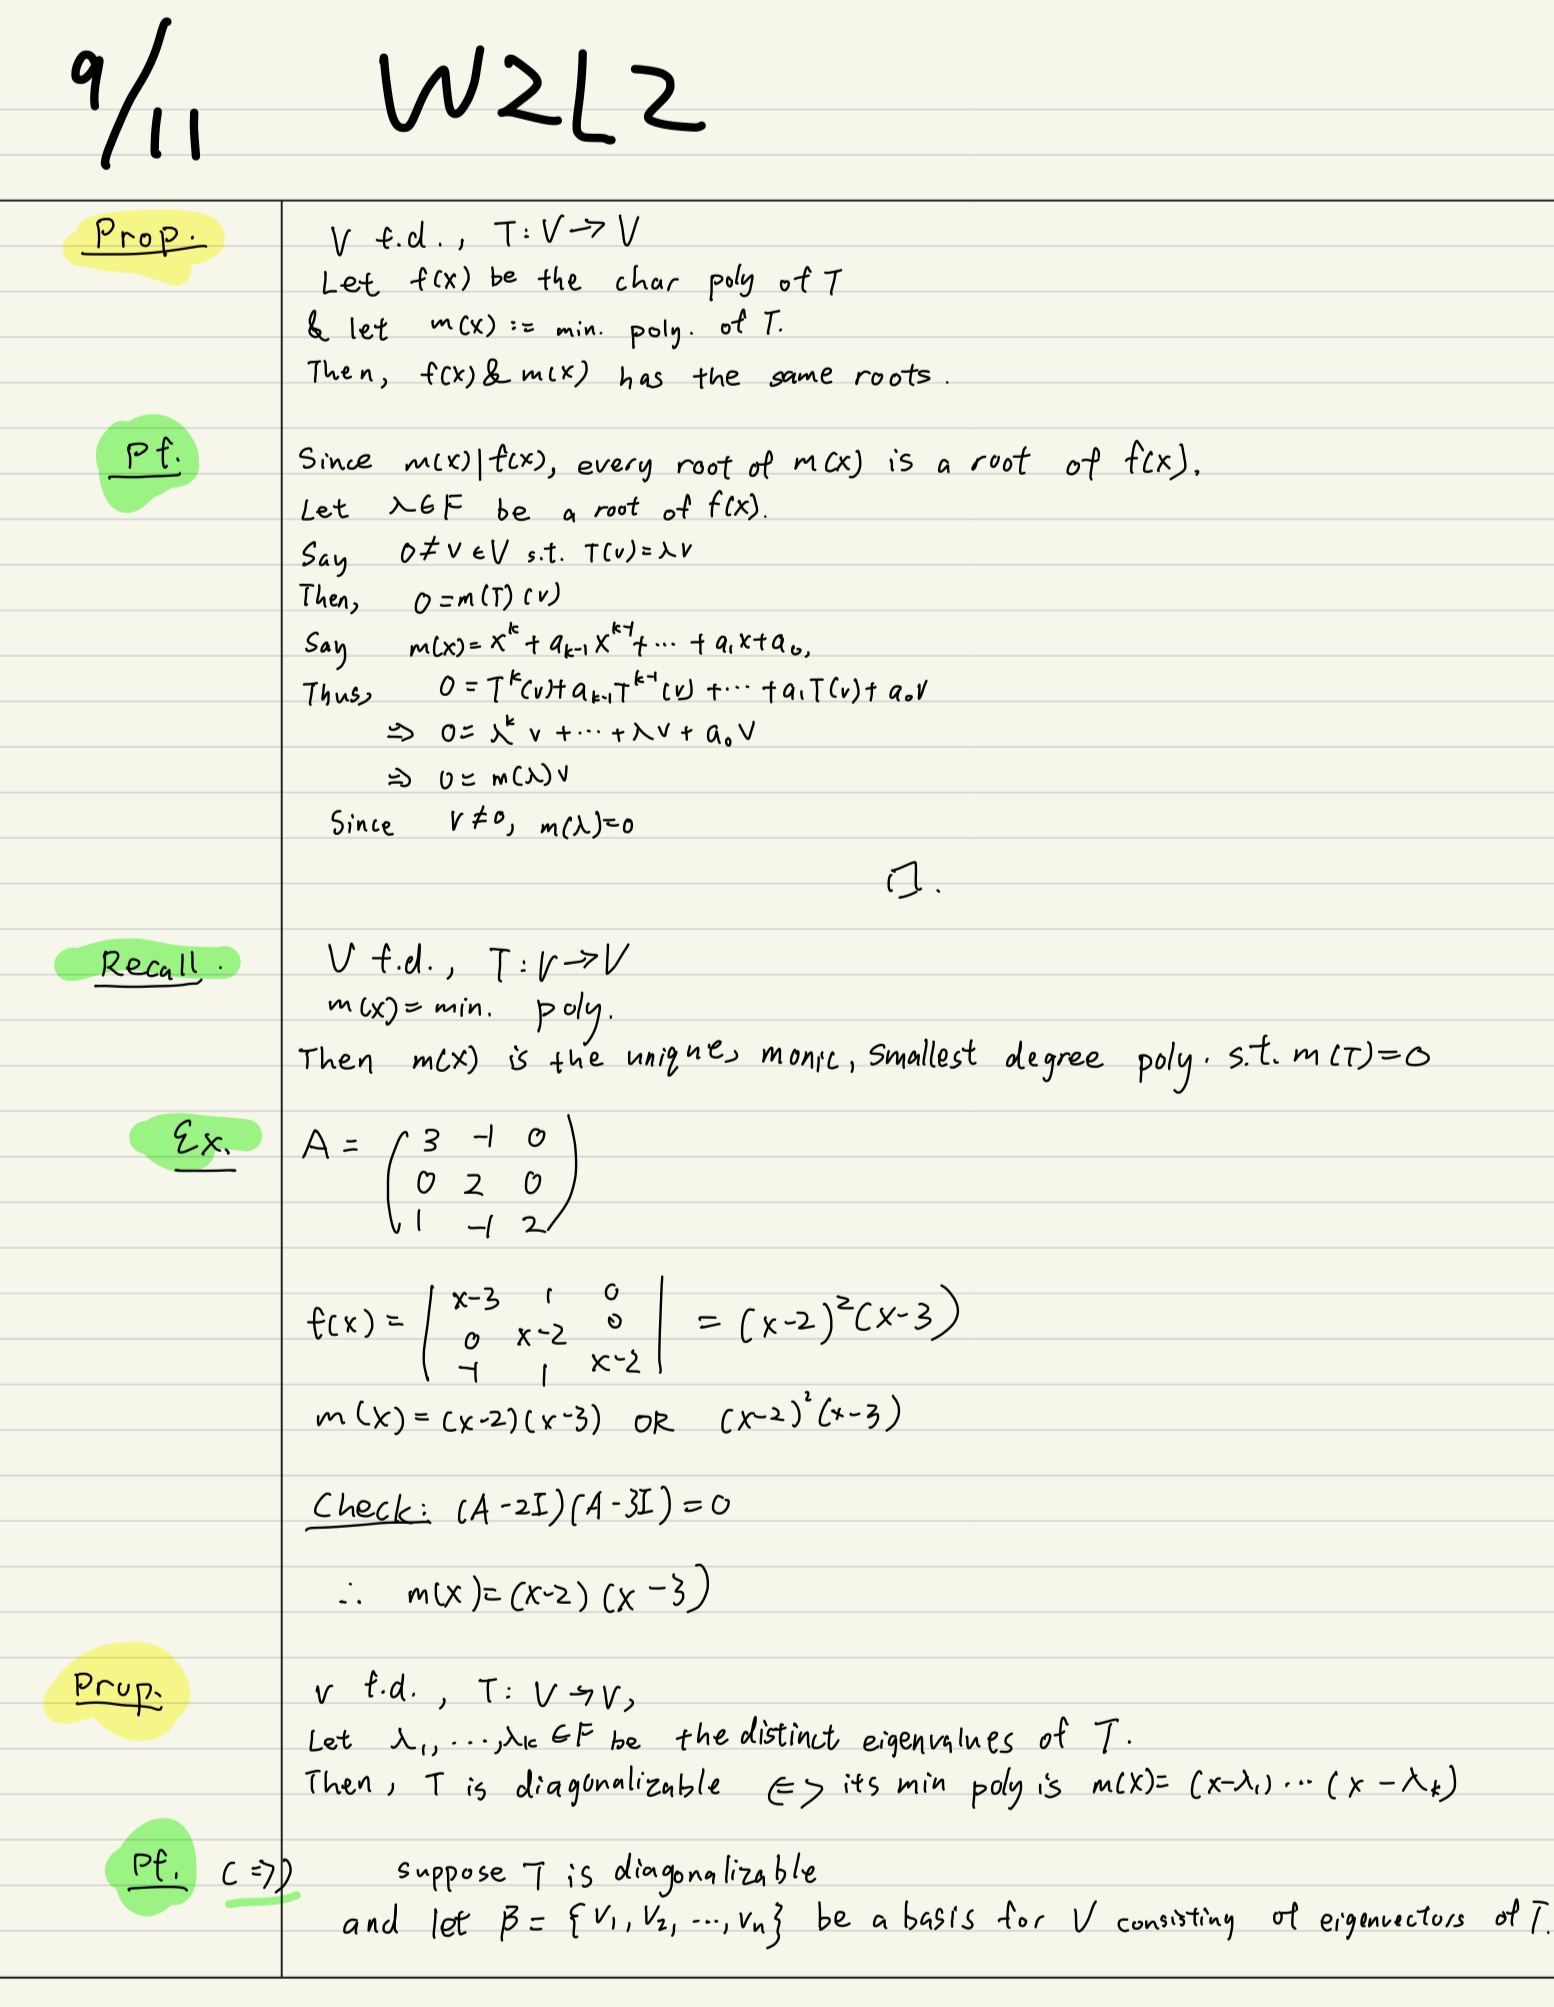 9/11 W2L2
Prop.
V f.d., T: V → V
Let f(x) be the char poly of T
& let m(x) := min. poly. of T.
Then, f(x) & m(x) has the same roots.
Pf.
Since m(x)|f(x), every root of m(x) is a root of f(x).
Let λ∈F be a root of f(x).
Say 0≠v∈V s.t. T(v)=λv
Then, 0=m(T)(v)
Say m(x)=x^k+a_{k-1}x^{k-1}+⋯+a_1x+a_0,
Thus, 0=T^k(v)+a_{k-1}T^{k-1}(v)+⋯+a_1T(v)+a_0v
⇒ 0=λ^k v+⋯+λv+a_0v
⇒ 0=m(λ)v
Since v≠0, m(λ)=0
□.
Recall.
V f.d., T: V→V
m(x)=min. poly.
Then m(x) is the unique, monic, smallest degree poly. s.t. m(T)=0
Ex.
A = ( 3 -1 0
0 2 0
1 -1 2 )
f(x) = | x-3 1 0
0 x-2 0
-1 1 x-2 | = (x-2)^2(x-3)
m(x)=(x-2)(x-3) OR (x-2)^2(x-3)
Check: (A-2I)(A-3I)=0
∴ m(x)=(x-2)(x-3)
Prop.
V f.d., T: V→V,
Let λ_1,⋯,λ_k∈F be the distinct eigenvalues of T.
Then, T is diagonalizable <=> its min poly is m(x)=(x-λ_1)⋯(x-λ_k)
Pf. (=>) suppose T is diagonalizable
and let β={v_1,v_2,⋯,v_n} be a basis for V consisting of eigenvectors of T.